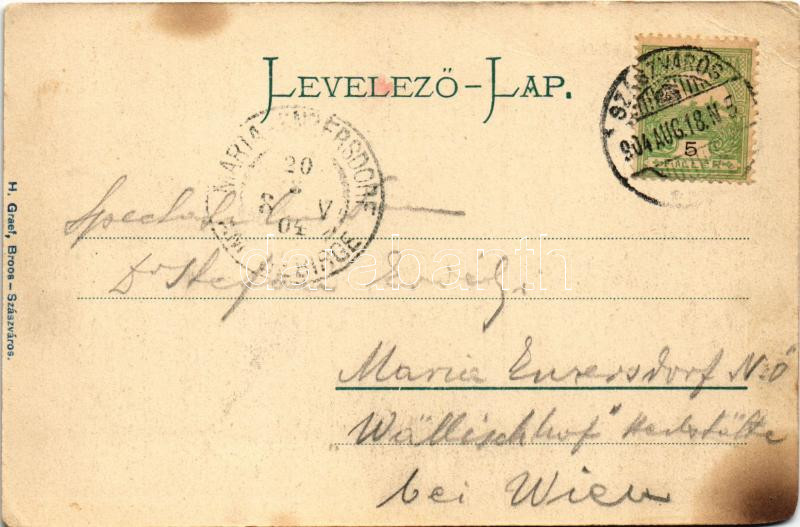 LEVELEZŐ-LAP.
SZÁSZVÁROS
904 AUG. 18. N 5
5
FILLÉR
MARIA ENZERSDORF
20
8
V
04
GEBIRGE
Dr Stefan
Maria Enzersdorf N.Ö
"Wällischhof"
bei Wien
H. Graef, Broos – Szászváros.
darabanth